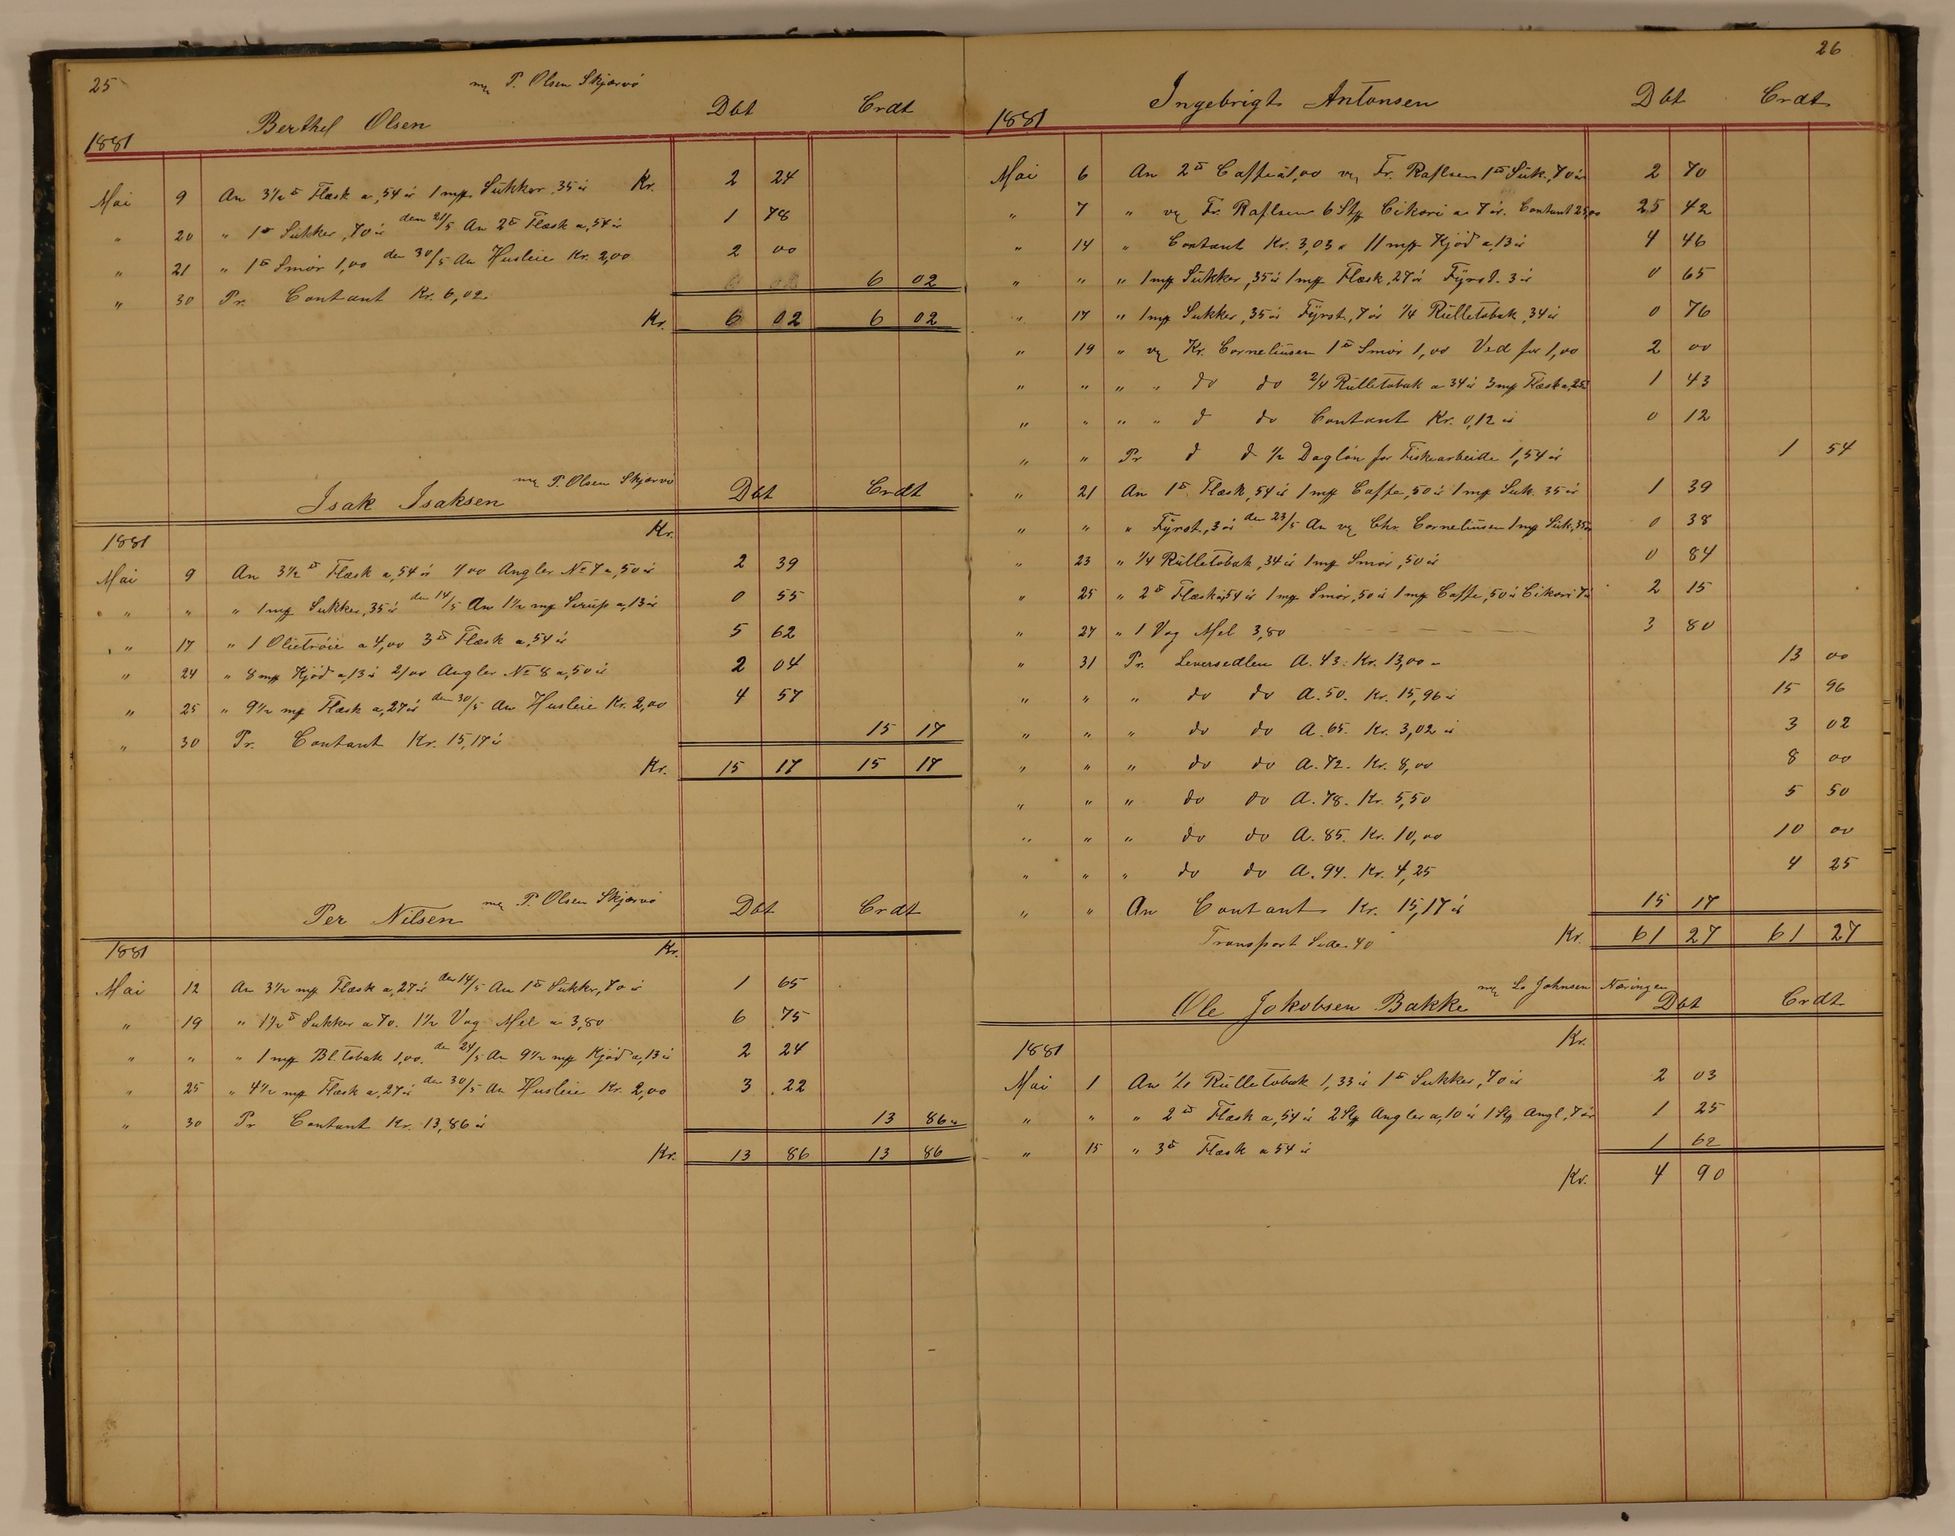 25
P. Olsen Skjærvö
Berthel Olsen Dbt Crdt
1881
Mai 9 An 3½ ℔ Flæsk a, 54 ör 1 mp Sukker, 35 ör Kr. 2 24
" 20 " 1 ℔ Sukker, 70 ör den 21/5 An 2 ℔ Flæsk a, 54 ör 1 78
" 21 " 1 ℔ Smör 1,00 den 30/5 An Husleie Kr. 2,00 2 00
" 30 Pr. Contant Kr. 6,02 6 02
Kr. 6 02 6 02
Isak Isaksen P. Olsen Skjærvö Dbt Crdt
1881 Kr.
Mai 9 An 3½ ℔ Flæsk a, 54 ör 100 Angler No 7 a, 50 ör 2 39
" " " 1 mp Sukker, 35 ör den 14/5 An 1½ mp Sirup a, 13 ör 0 55
" 17 " 1 Olietröie a 4,00 3 ℔ Flæsk a, 54 ör 5 62
" 24 " 8 mp Kjöd a, 13 ör 2/00 Angler No 8 a, 50 ör 2 04
" 25 " 9½ mp Flæsk a, 27 ör den 30/5 An Husleie Kr. 2,00 4 57
" 30 Pr. Contant Kr. 15,17 ör 15 17
Kr. 15 17 15 17
Per Nilsen P. Olsen Skjærvö Dbt Crdt
1881 Kr.
Mai 12 An 3½ mp Flæsk a, 27 ör den 14/5 An 1 ℔ Sukker, 70 ör 1 65
" 19 " 1½ ℔ Sukker a 70. 1½ Vog Mel a 3,80 6 75
" " " 1 mp Bl. tobak 1,00. den 24/5 An 9½ mp Kjöd a, 13 ör 2 24
" 25 " 4½ mp Flæsk a, 27 ör den 30/5 An Husleie Kr. 2,00 3 22
" 30 Pr Contant Kr. 13,86 ör 13 86
Kr. 13 86 13 86
26
Ingebrigt Antonsen Dbt Crdt
1881
Mai 6 An 2 ℔ Caffe a 1,00 vg Fr. Raflsen 1 ℔ Suk., 70 ör 2 70
" 7 " vg Fr. Raflsen 6 Stp Cikori a 7 ör. Contant 25,00 25 42
" 14 " Contant Kr. 3,03 " 11 mp Kjöd a, 13 ör 4 46
" " " 1 mp Sukker, 35 ör 1 mp Flæsk, 27 ör Fyrst. 3 ör 0 65
" 17 " 1 mp Sukker, 35 ör Fyrst, 7 ör ¼ Rulletobak, 34 ör 0 76
" 19 " vg Kr. Corneliusen 1 ℔ Smör 1,00 Ved for 1,00 2 00
" " " " do do 2/4 Rulletobak a 34 ör 3 mp Flæsk a, 25 1 43
" " " " d do Contant Kr. 0,12 ör 0 12
" " Pr d d ½ Daglön for Fiskearbeide 1,54 ör 1 54
" 21 An 1 ℔ Flæsk, 54 ör 1 mp Caffe, 50 ör 1 mp Suk. 35 ör 1 39
" " " Fyrst, 3 ör den 23/5 An vg Chr. Corneliusen 1 mp Suk, 35 ör 0 38
" 23 " ¼ Rulletobak, 34 ör 1 mp Smör, 50 ör 0 84
" 25 " 2 ℔ Flæsk a, 54 ör 1 mp Smör, 50 ör 1 mp Caffe, 50 ör Cikori 7 ör 2 15
" 27 " 1 Vog Mel 3,80 3 80
" 31 Pr. Leversedlen A. 43. Kr. 13,00 13 00
" " " do do A. 50. Kr. 15,96 ör 15 96
" " " do do A. 65. Kr. 3,02 ör 3 02
" " " do do A. 72. Kr. 8,00 8 00
" " " do do A. 78. Kr. 5,50 5 50
" " " do do A. 85. Kr. 10,00 10 00
" " " do do A. 94. Kr. 4,25 4 25
" " An Contant Kr. 15,17 ör 15 17
Transport Side 40 Kr. 61 27 61 27
Ole Jakobsen Bakke L. Johnsen Næringen Dbt Crdt
1881 Kr.
Mai 1 An ½ Rulletobak 1,33 ör 1 ℔ Sukker, 70 ör 2 03
" " " 2 ℔ Flæsk a, 54 ör 2 Stp Angler a, 10 ör 1 Stp Angl, 7 ör 1 25
" 15 " 3 ℔ Flæsk a 54 ör 1 62
Kr. 4 90